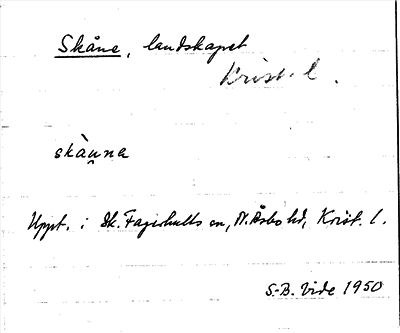 Skåne, landskapet
Krist. l.
skàu̯na
Uppt. i Sk. Fagerhults sn, N. Åsbo hd, Krist. l.
S.-B. Vide 1950